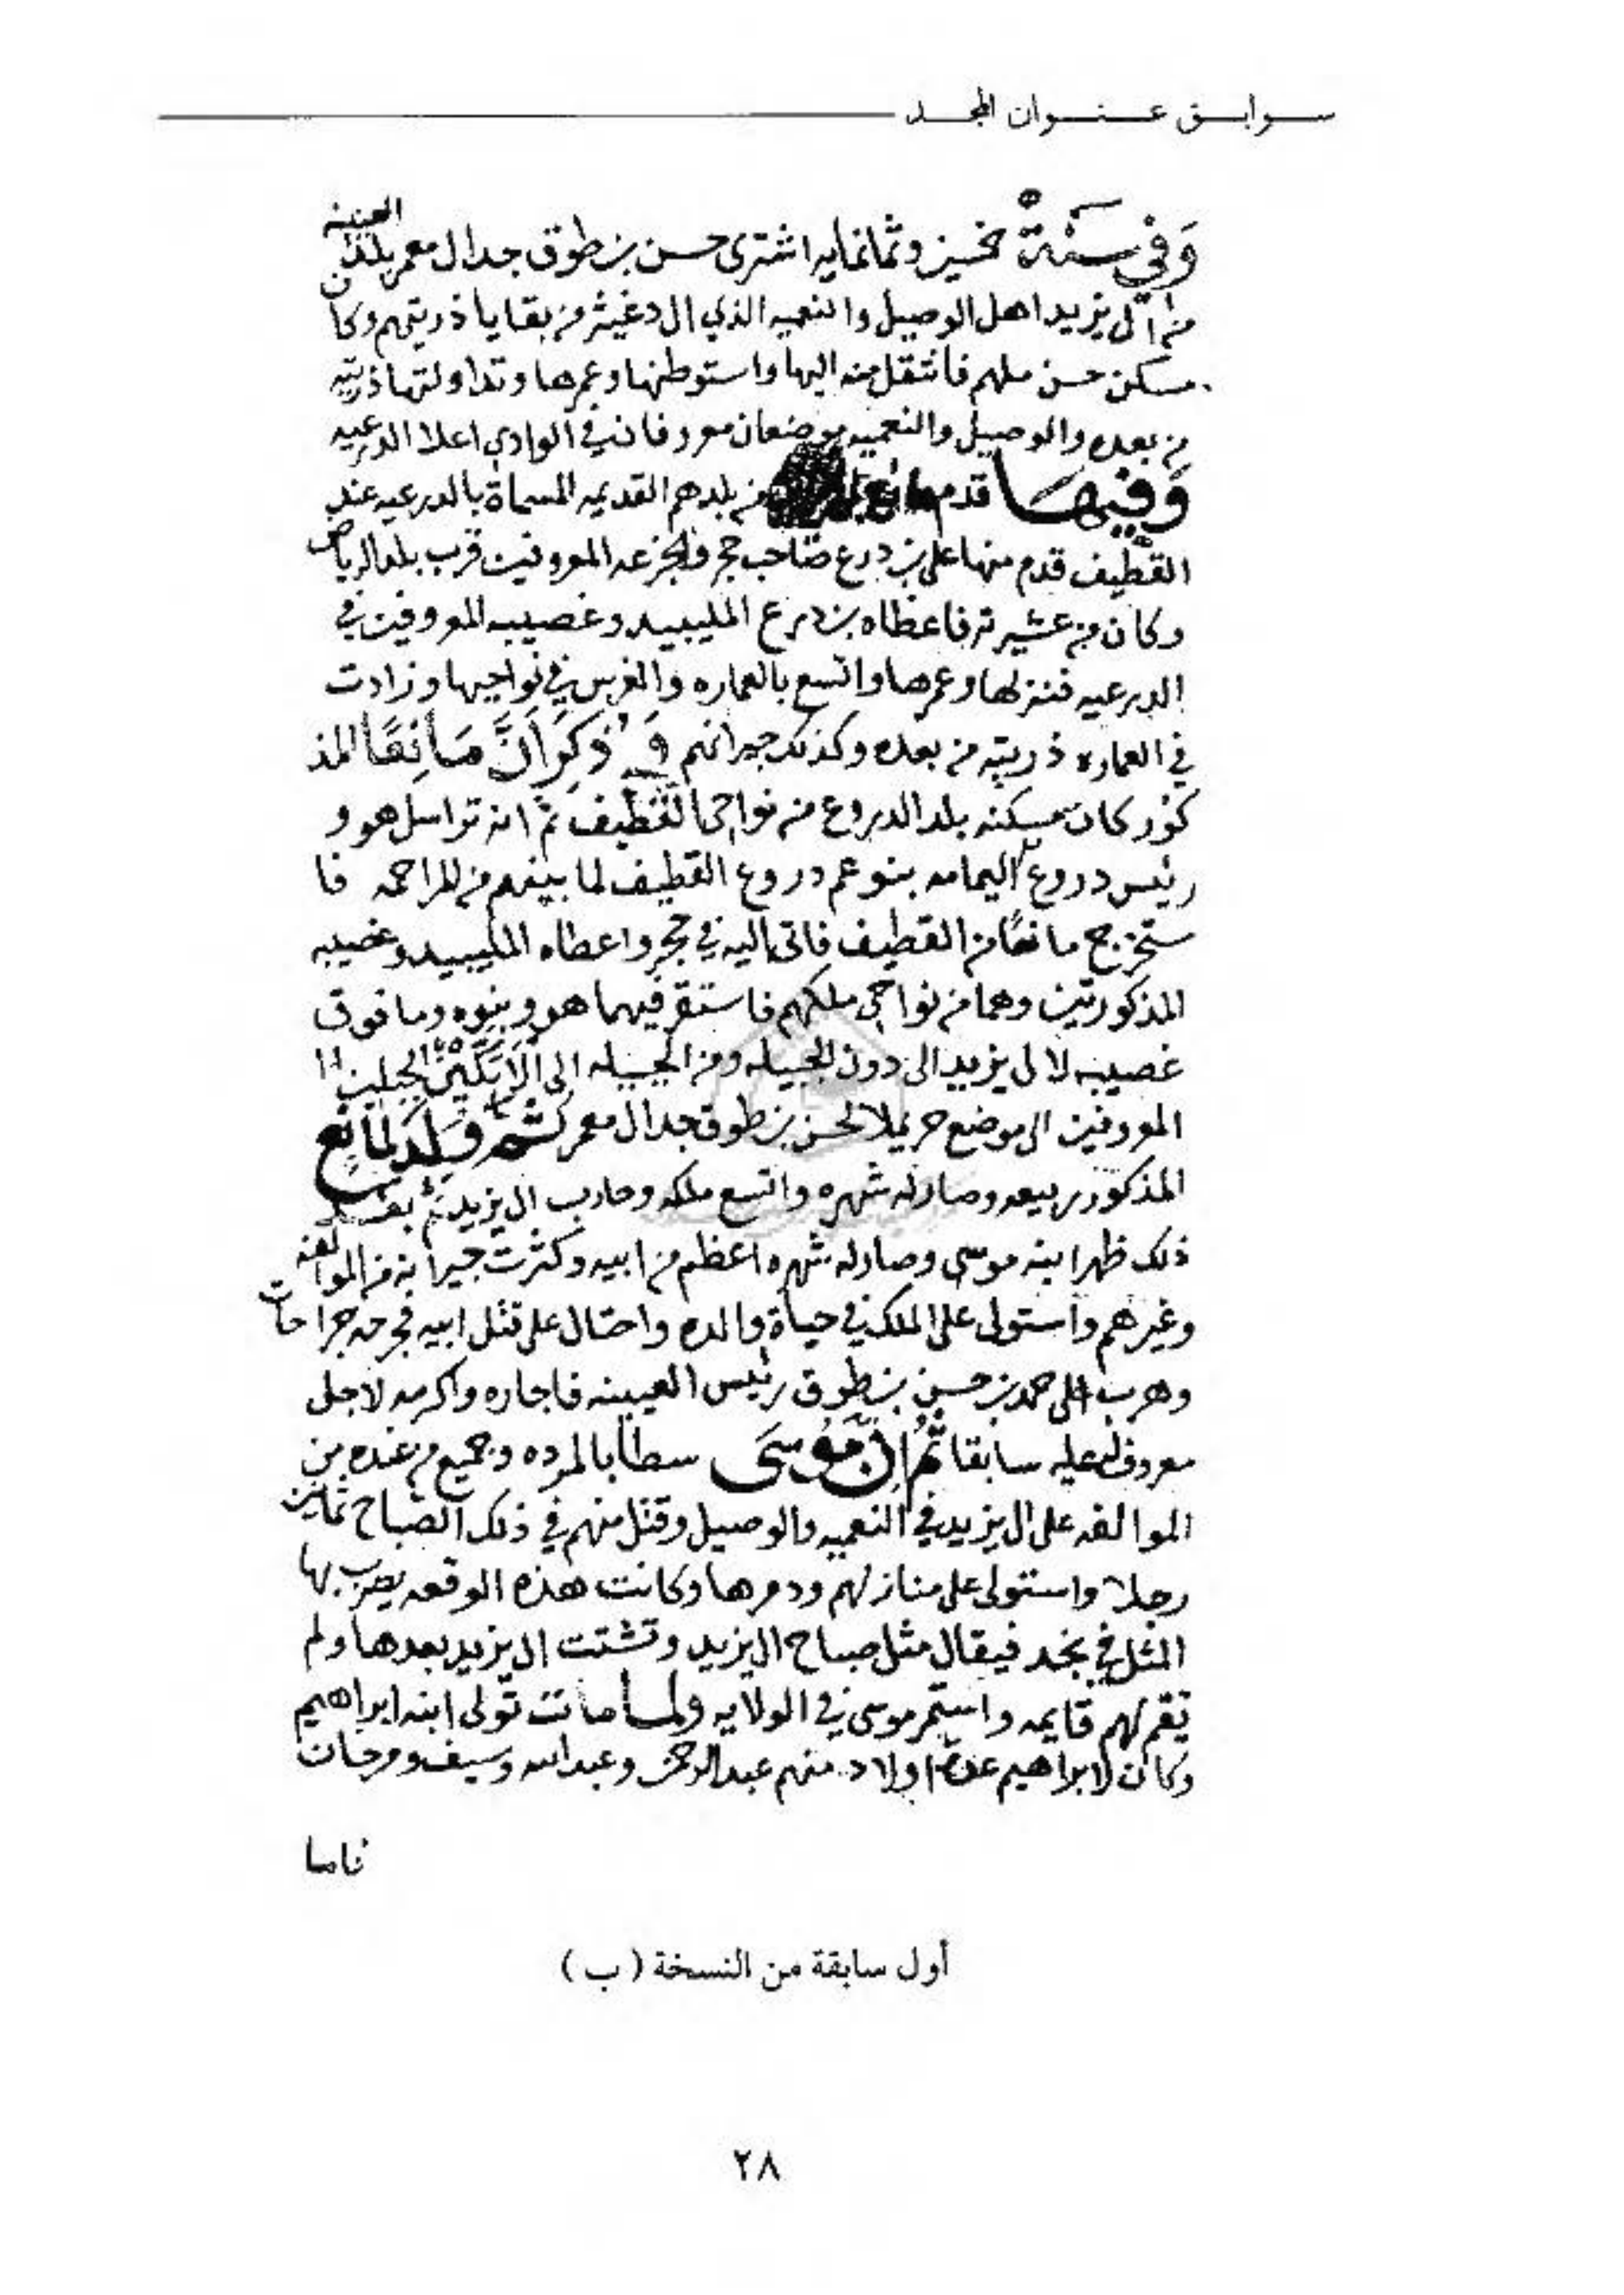 سوابق عنوان المجد
وَفي سَنَة خمسين وثمانمايه اشترى حسن بن طوق جد ال معمر بلد العيينه
من ال يزيد اهل الوصيل والنعميه الذي ال دغيثر من بقايا ذريتهم وكان
مسكن حسن ملهم فانتقل منه اليها واستوطنها وعمرها وتداولتها ذريته
من بعده والوصيل والنعميه موضعان معروفان في الوادي اعلا الدرعيه
وَفيهَا قدم مانع من بلدهم القديمه المسماة بالدرعيه عند
القطيف قدم منها على بن درع صاحب حجر والجزعه المعروفين قرب بلد الرياض
وكان من عشيرته فاعطاه بن درع المليبيد وغصيبه المعروفين في
الدرعيه فنزلها وعمرها واتسع بالعماره والغرس في نواحيها وزادت
في العماره ذريته من بعده وكذلك جيرانهم وَذُكِرَ اَنَّ مَانِعًا المذ
كور كان مسكنه بلد الدروع من نواحي القطيف ثم انه تراسل هو و
رئيس دروع اليمامه بنو عم دروع القطيف لما بينهم من المراحمه فا
ستخرج مانعًا من القطيف فاتى اليه في حجر واعطاه المليبيد وغصيبه
المذكورتين وهما من نواحي ملكهم فاستقر فيهما هو وبنوه وما فوق
غصيبه لال يزيد الى دون الجبيله ومن الجبيله الى الابكين الجبلين
المعروفين الى موضع حريملا لحسن بن طوق جد ال معمر ثم وَلد لمانع
المذكور ربيعه وصار له شهره واتسع ملكه وحارب ال يزيد ثم بعد
ذلك ظهر ابنه موسى وصار له شهره اعظم من ابيه وكثرت جيرانه من الموالفه
وغيرهم واستولى على الملك في حياة والده واحتال على قتل ابيه فجرحه جراحات
وهرب الى حمد بن حسن بن طوق رئيس العيينه فاجاره واكرمه لاجل
معروف له عليه سابقا ثُمَّ اِنَّ مُوسَى سطا بالمرده وجميع من عنده من
الموالفه على ال يزيد في النعميه والوصيل وقتل منهم في ذلك الصباح ثمانين
رجلا واستولى على منازلهم ودمرها وكانت هذه الوقعه يضرب بها
المثل في نجد فيقال مثل صباح ال يزيد وتشتت ال يزيد بعدها ولم
تقم لهم قايمه واستمر موسى في الولايه ولما مات تولى ابنه ابراهيم
وكان لابراهيم عدة اولاد منهم عبدالرحمن وعبدالله وسيف ومرخان
فاما
أول سابقة من النسخة ( ب )
٢٨